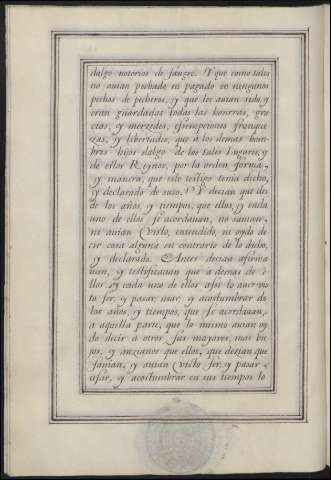 dalgo notorios de sangre. Y que como tales
no auian pechado, ni pagado en ningunos
pechos de pecheros, y que les auian sido, y
eran guardadas todas las honrras, gra
cias, y merzedes, essempciones, franque
zas, y libertades, que à los demas hom
bres hijos dalgo de los tales Lugares, y
de estos Reynos, por la orden, forma,
y manera, que este testigo tenia dicho,
y declarado de suso. Y dezian que des
de los años, y tiempos, que ellos, y cada
uno de ellos se acordauan, no sauian,
ni auian visto, entendido, ni oydo de
cir cosa alguna en contrario de lo dicho,
y declarado. Antes dezian afirma
uan, y testificauan que à demas de e
llos, y cada uno de ellos assi lo auer vis
to ser, y pasar, usar, y acostumbrar de
los años, y tiempos, que se acordauan,
a aquella parte, que lo mismo auian oy
do decir à otros sus mayores, mas vie
jos, y anzianos que ellos, que dezian que
sauian, y auian visto ser, y pasar,
usar, y acostumbrar en sus tiempos lo